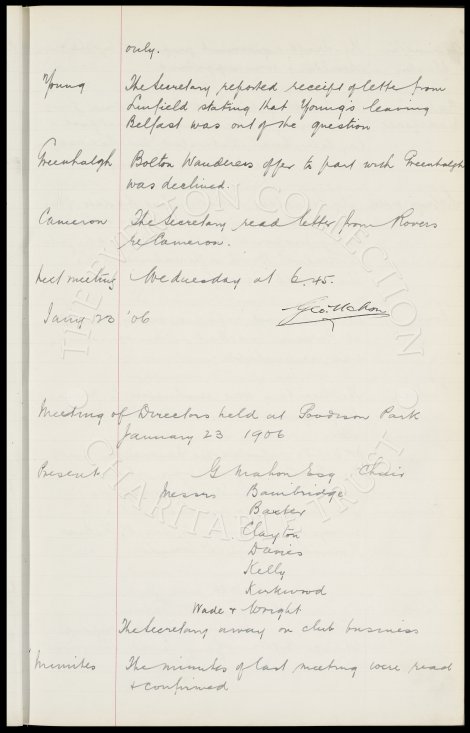 only.
Young The Secretary reported receipt of letter from
Linfield stating that Young's leaving
Belfast was out of the question
Greenhalgh Bolton Wanderers offer to part with Greenhalgh
was declined.
Cameron The Secretary read letter from Rovers
re Cameron.
Next meeting Wednesday at 6.45.
Jany 23 '06 Geo. Mahon
Meeting of Directors held at Goodison Park
January 23 1906
Present G Mahon Esq Chair
Messrs Bainbridge
Baxter
Clayton
Davies
Kelly
Kirkwood
Wade & Wright
The Secretary away on club business
Minutes The minutes of last meeting were read
& confirmed
THE EVERTON COLLECTION
CHARITABLE TRUST